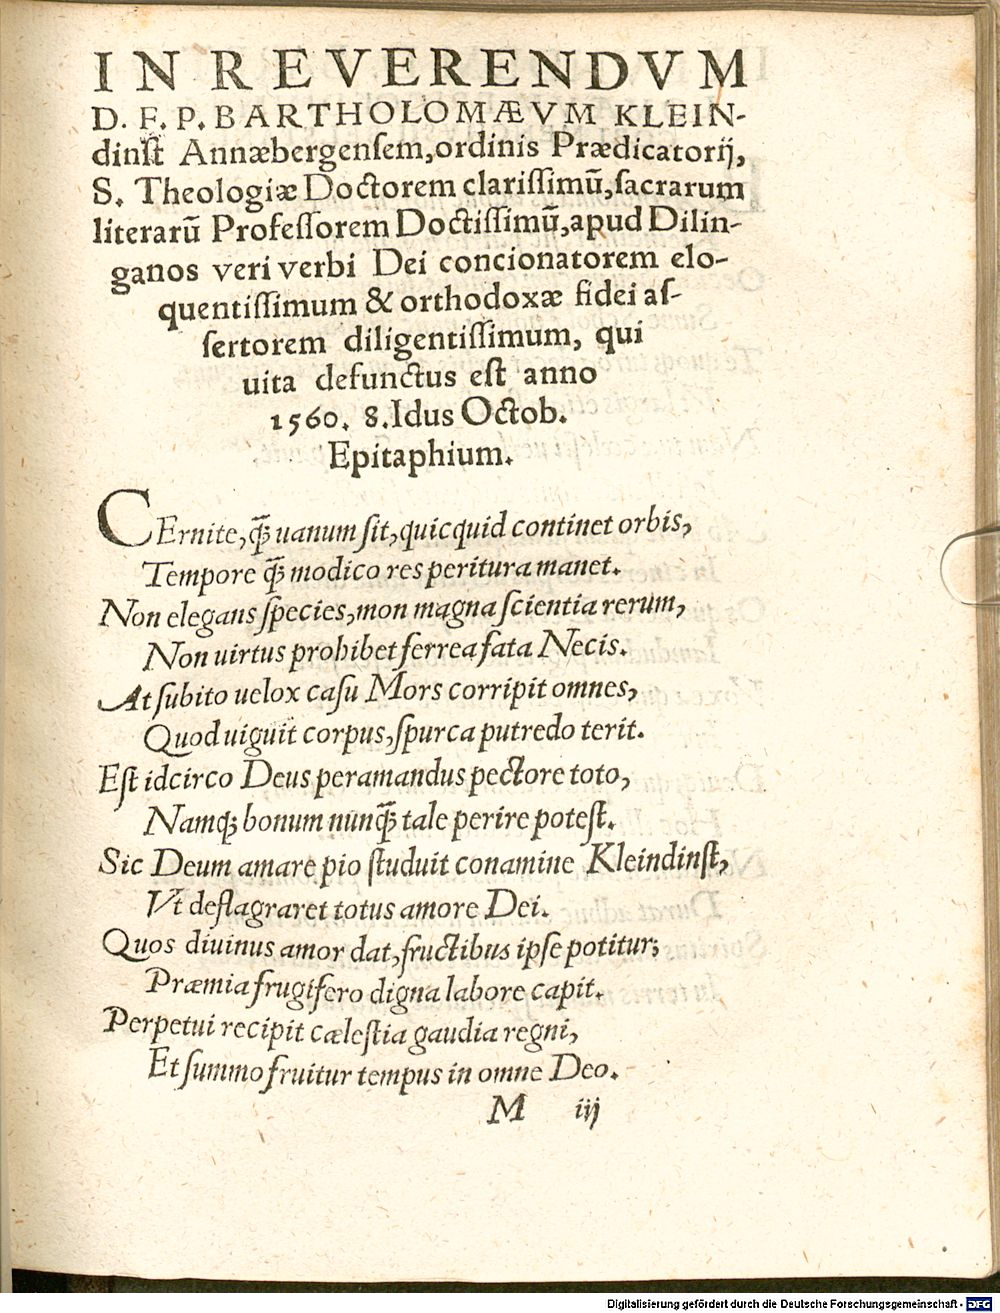 IN REVERENDVM
D. F. P. BARTHOLOMÆVM KLEIN-
dinſt Annæbergenſem, ordinis Prædicatorij,
S. Theologiæ Doctorem clariſſimū, ſacrarum
literarū Profeſſorem Doctiſſimū, apud Dilin-
ganos veri verbi Dei concionatorem elo-
quentiſſimum & orthodoxæ fidei aſ-
ſertorem diligentiſſimum, qui
uita defunctus eſt anno
1560. 8. Idus Octob.
Epitaphium.
CErnite, ꝙ̃ uanum ſit, quicquid continet orbis,
Tempore ꝙ̃ modico res peritura manet.
Non elegans ſpecies, mon magna ſcientia rerum,
Non uirtus prohibet ferrea fata Necis.
At ſubito uelox caſu Mors corripit omnes,
Quod uiguit corpus, ſpurca putredo terit.
Eſt idcirco Deus peramandus pectore toto,
Namꝗ; bonum nunꝙ̃ tale perire poteſt.
Sic Deum amare pio ſtuduit conamine Kleindinſt,
Vt deflagraret totus amore Dei.
Quos diuinus amor dat, fructibus ipſe potitur;
Præmia frugifero digna labore capit.
Perpetui recipit cæleſtia gaudia regni,
Et ſummo fruitur tempus in omne Deo.
M iij
Digitalisierung gefördert durch die Deutsche Forschungsgemeinschaft - DFG